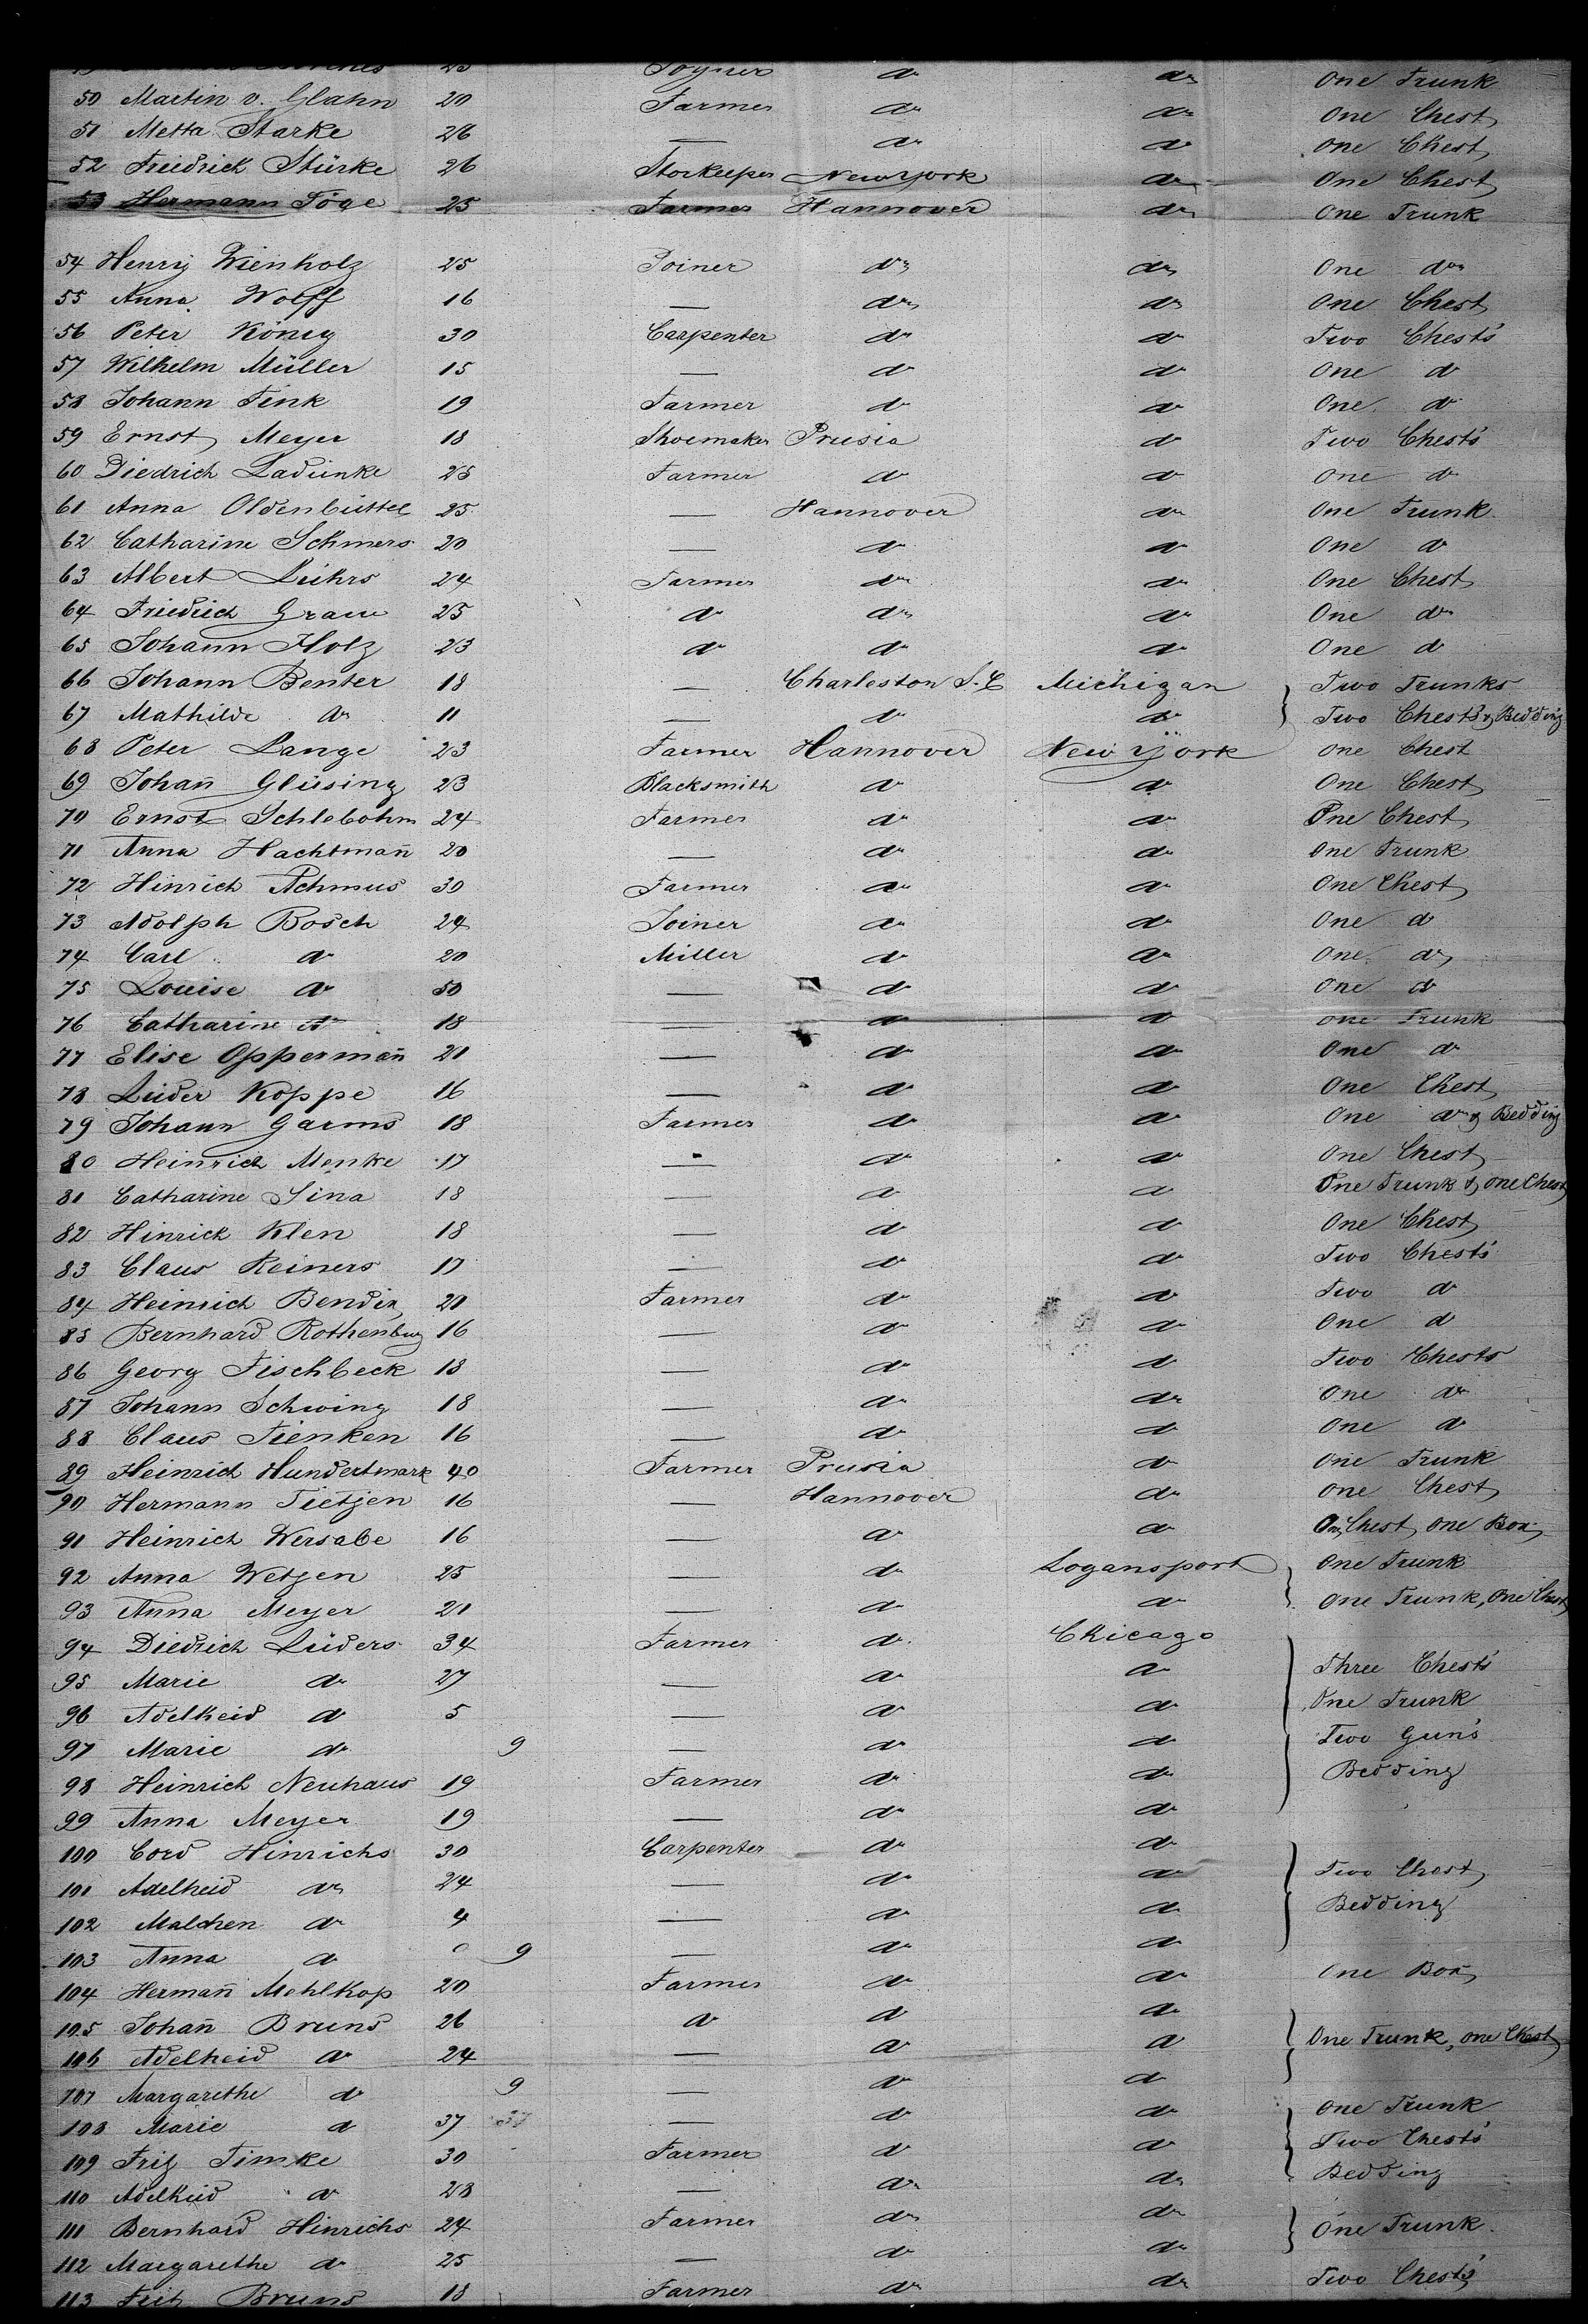 25 Joyner do do One Trunk
50 Martin v. Glahn 20 Farmer do do One Chest
51 Metta Starke 26 — do do One Chest
52 Friedrich Stürke 26 Storkeeper New York do One Chest
53 Hermann Töge 25 Farmer Hannover do One Trunk
54 Henry Wienholz 25 Joiner do do One do
55 Anna Wolff 16 — do do One Chest
56 Peter König 30 Carpenter do do Two Chest's
57 Wilhelm Müller 15 — do do One do
58 Johann Fink 19 Farmer do do One do
59 Ernst Meyer 18 Shoemaker Prusia do Two Chest's
60 Diedrich Ladünke 25 Farmer do do One do
61 Anna Oldenbüttel 25 — Hannover do One Trunk
62 Catharine Schmers 20 — do do One do
63 Albert Lührs 24 Farmer do do One Chest
64 Friedrich Graue 25 do do do One do
65 Johann Holz 23 do do do One do
66 Johann Benter 18 — Charleston S.C Michigan Two Trunks
67 Mathilde do 11 — do do Two Chest's & Bedding
68 Peter Lange 23 Farmer Hannover New York One Chest
69 Johañ Glüsing 23 Blacksmith do do One Chest
70 Ernst Schlobohm 24 Farmer do do One Chest
71 Anna Hachtmañ 20 — do do One Trunk
72 Hinrich Achmus 30 Farmer do do One Chest
73 Adolph Bosch 24 Joiner do do One do
74 Carl do 20 Miller do do One do
75 Louise do 50 — do do One do
76 Catharine do 18 — do do One Trunk
77 Elise Oppermañ 21 — do do One do
78 Lüder Koppe 16 — do do One Chest
79 Johann Garms 18 Farmer do do One do & Bedding
80 Heinrich Menke 17 — do do One Chest
81 Catharine Sina 18 — do do One Trunk & one Chest
82 Hinrich Klen 18 — do do One Chest
83 Claus Reiners 17 — do do Two Chest's
84 Heinrich Bendix 20 Farmer do do Two do
85 Bernhard Rothenburg 16 — do do One do
86 Georg Fischbeck 18 — do do Two Chests
87 Johann Schwing 18 — do do One do
88 Claus Tienken 16 — do do One do
89 Heinrich Hundertmark 40 Farmer Prusia do One Trunk
90 Hermann Tietjen 16 — Hannover do One Chest
91 Heinrich Wersabe 16 — do do One Chest, one Box
92 Anna Wetgen 25 — do Logansport One Trunk
93 Anna Meyer 21 — do do One Trunk, One Chest
94 Diedrich Lüders 34 Farmer do Chicago
95 Marie do 27 — do do Three Chest's
96 Adelheid do 5 — do do One Trunk
97 Marie do 9 — do do Two Gun's
98 Heinrich Neuhaus 19 Farmer do do Bedding
99 Anna Meyer 19 — do do
100 Cord Hinrichs 30 Carpenter do do
101 Adelheid do 24 — do do Two Chest
102 Malchen do 4 — do do Bedding
103 Anna do 0 9 — do do
104 Hermañ Mehlkop 20 Farmer do do One Box
105 Johañ Bruns 26 do do do
106 Adelheid do 24 — do do One Trunk, one Chest
107 Margarethe do 9 — do do
108 Marie do 37 37 — do do One Trunk
109 Friz Timke 30 Farmer do do Two Chest's
110 Adelheid do 28 — do do Bedding
111 Bernhard Hinrichs 24 Farmer do do One Trunk
112 Margarethe do 25 — do do
113 Bruns 18 Farmer do do Two Chest's